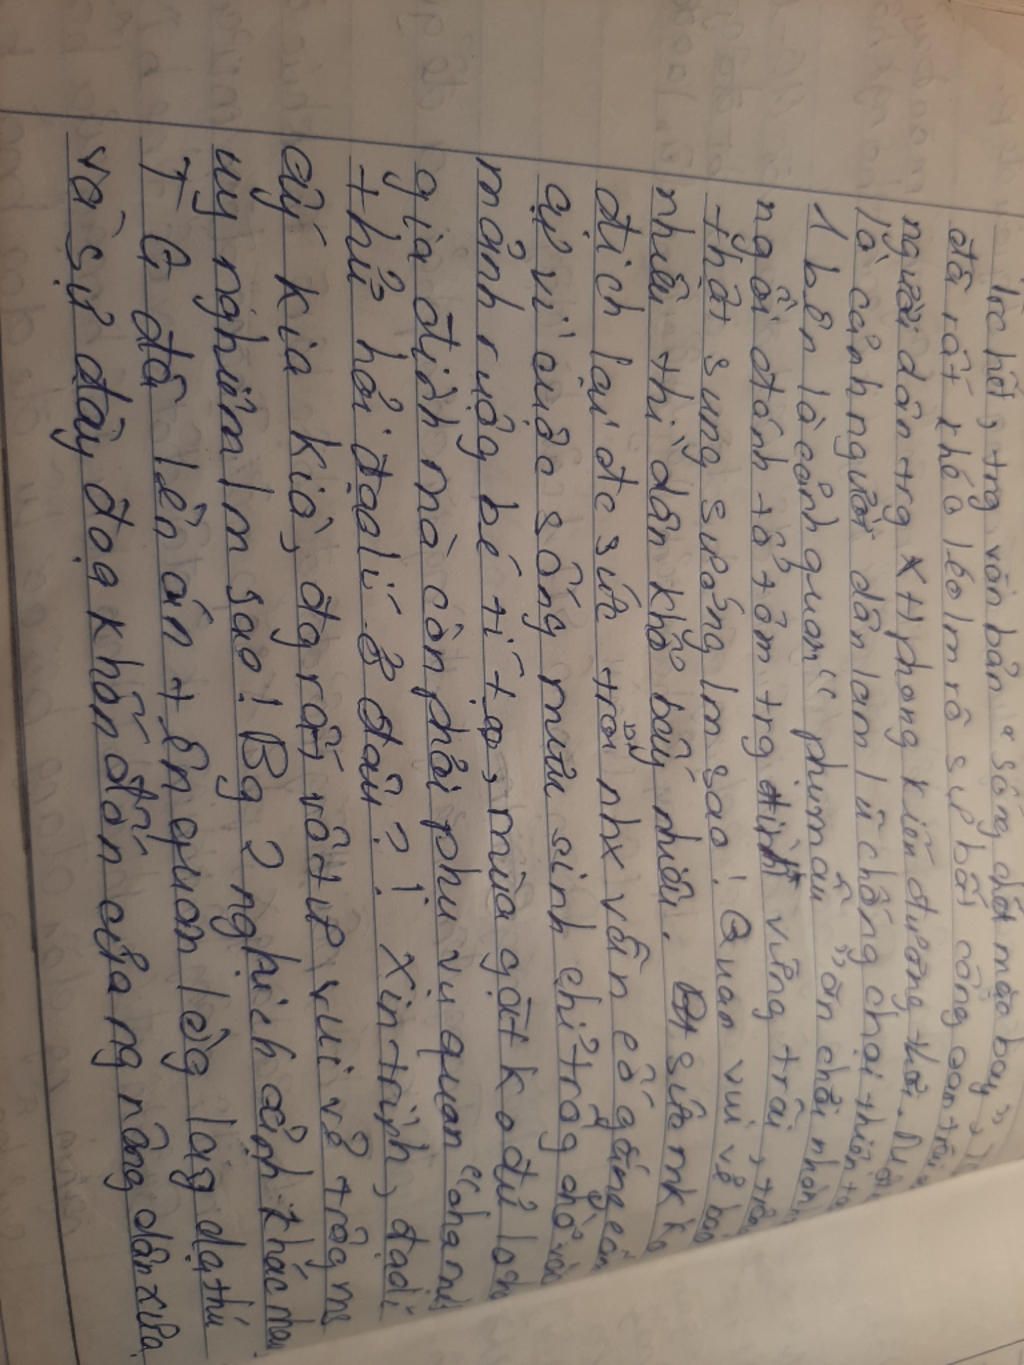 Trc hết, trg văn bản "sống chết mặc bay",
đã rất khéo léo lm rõ sự bất công oan trái
người dân trg XH phong kiến đương thời.
là cảnh người dân lam lũ chống chọi thiên ta
1 bên là cảnh quan "phụ mẫu" ăn chơi nhởn
ngồi đánh tổ tôm trg đình vững trãi, trốg
thật sung sướng lm sao! Quan vui vẻ bao
nhiêu thì dân khổ bấy nhiêu. sức mk k
địch lại đc sức trời nhx vẫn cố gắng cảm
gự vì cuộc sống mưu sinh chỉ trôg chờ vào
mảnh ruộg bé tí tẹo, mùa gặt k đủ lo ch
gia đình mà còn phải phụ vụ quan "cha mẹ
thử hỏi đạo lí ở đâu?! Xin trình, đa dí
ấy kia kìa, đg rất vôt ư vui vẻ trôg ms
uy nghiêm lm sao! Bg 2 nghịch cảnh khác nhau
T G đã lên án tên quan lòg lag dạ thú
và sự đày đọa khốn đốn của ng nông dân xưa